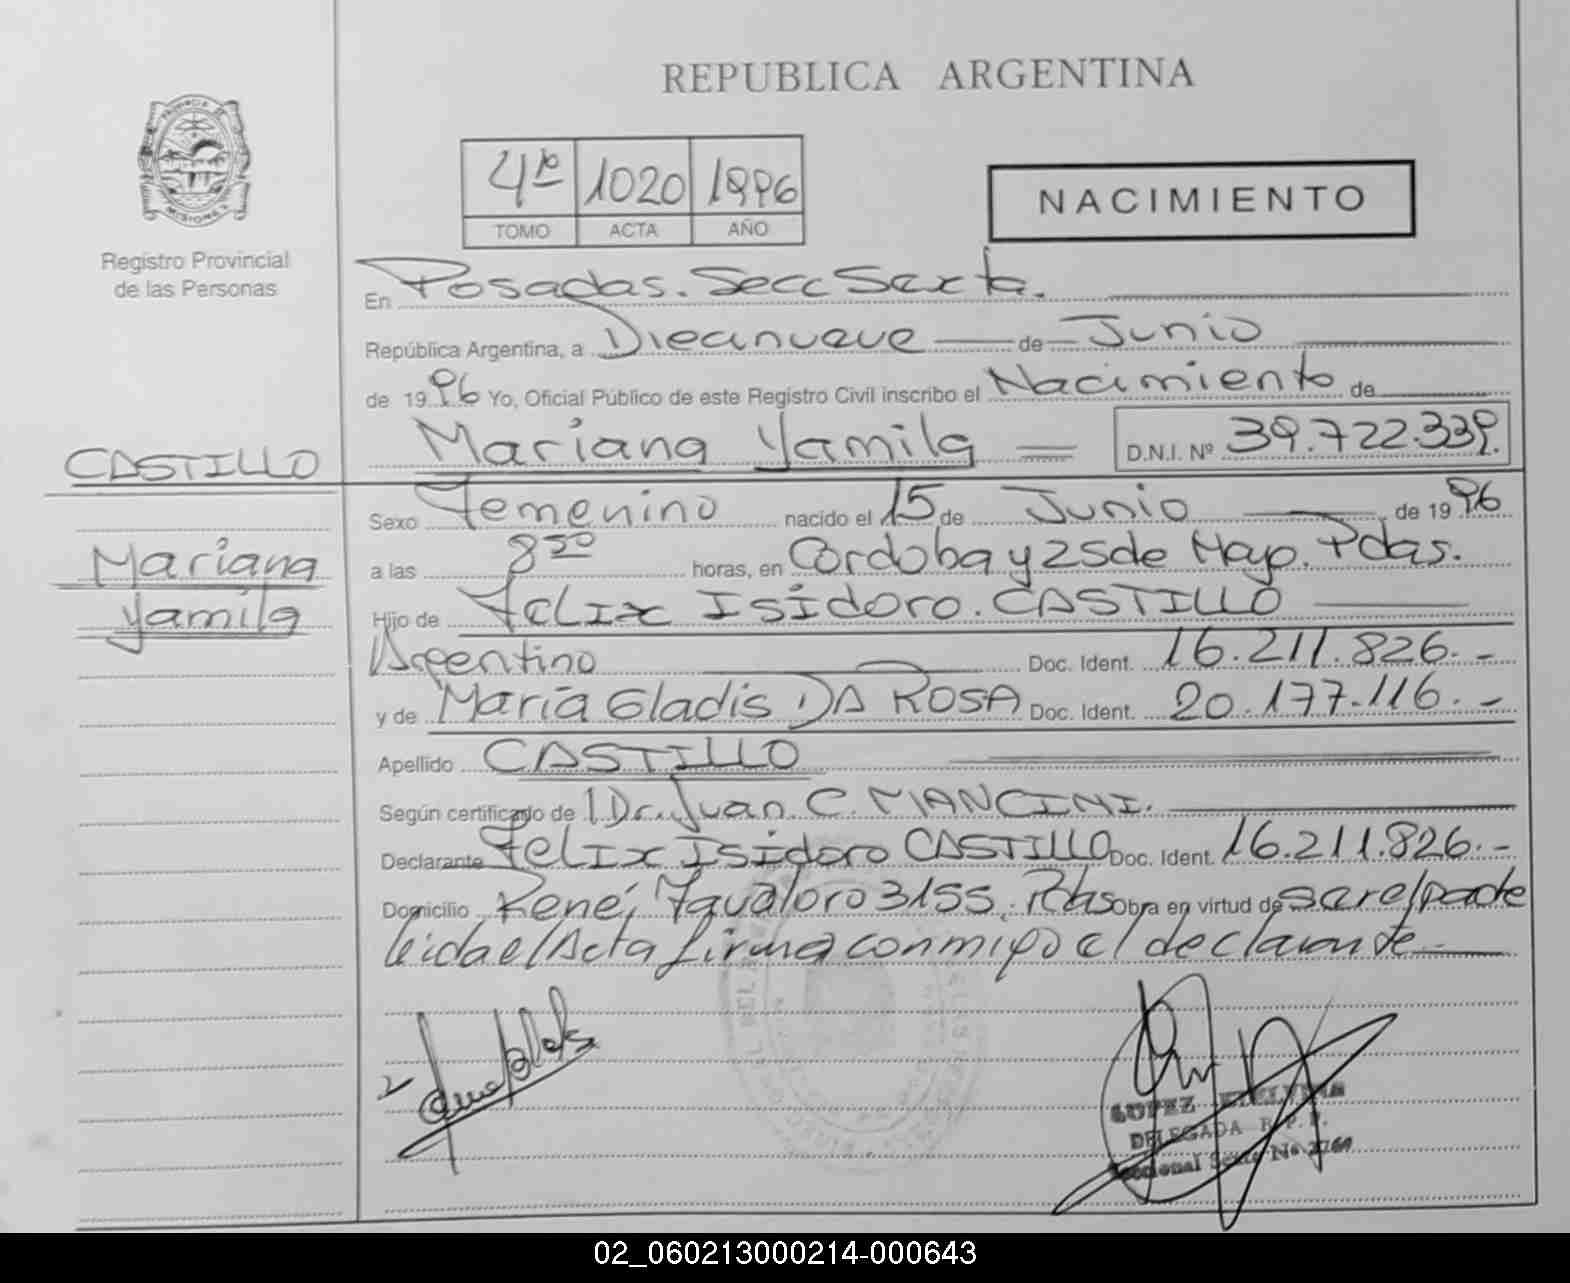 REPUBLICA ARGENTINA
PROVINCIA DE MISIONES
Registro Provincial
de las Personas
4to 1020 1996
TOMO ACTA AÑO
NACIMIENTO
En Posadas. Secc Sexta.
República Argentina, a Diecinueve de Junio
de 1996 Yo, Oficial Público de este Registro Civil inscribo el Nacimiento de
Mariana Yamila D.N.I. Nº 39.722.339.
CASTILLO
Mariana
Yamila
Sexo Femenino nacido el 15 de Junio de 1996
a las 8 50 horas, en Cordoba y 25 de Mayo. Pdas.
Hijo de Felix Isidoro. CASTILLO
Argentino Doc. Ident. 16.211.826.-
y de María Gladis DA ROSA Doc. Ident. 20.177.116.-
Apellido CASTILLO
Según certificado de Dr. Juan C. MANCINI.
Declarante Felix Isidoro CASTILLO Doc. Ident. 16.211.826.-
Domicilio René Favaloro 3155. Pdas Obra en virtud de ser el padre
leida el Acta firma conmigo el declarante
LOPEZ ETELVINA
DELEGADA R.P.P.
Seccional Sexta Nº 2760
02_060213000214-000643